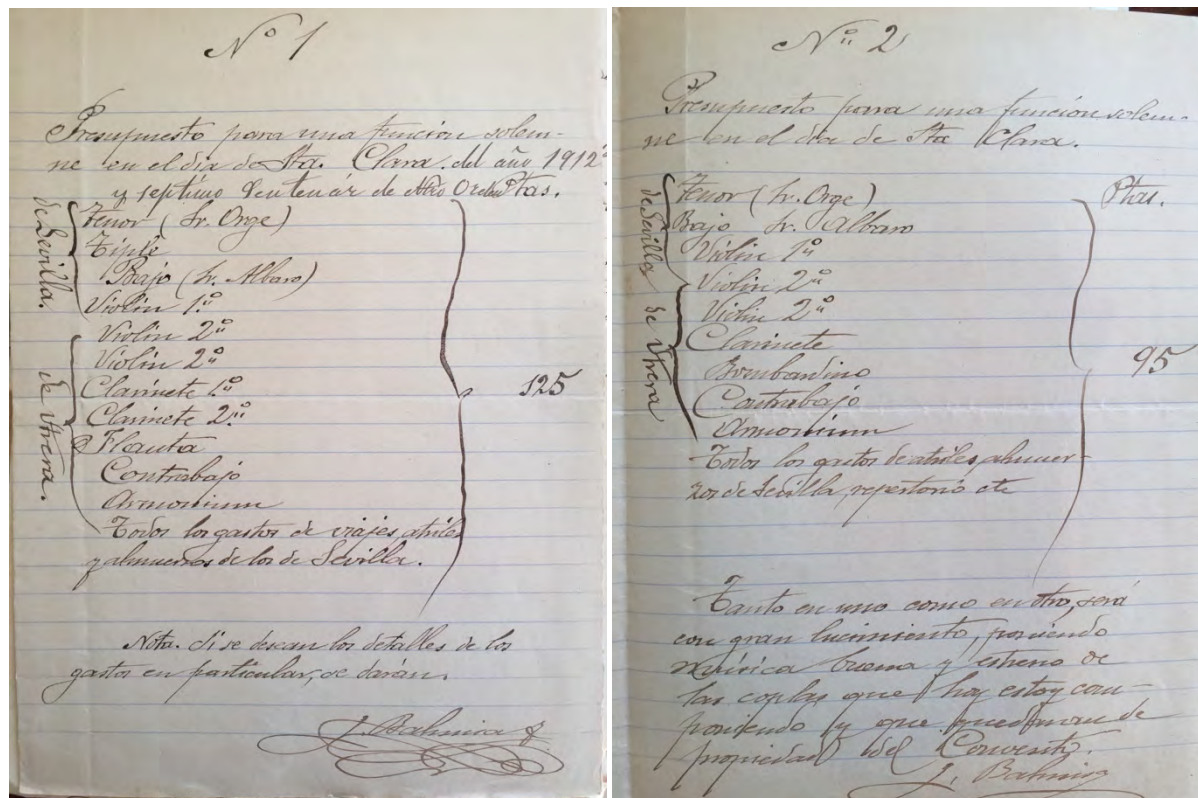 Nº 1
Presupuesto para una función solem-
ne en el día de Sta. Clara del año 1912
y septimo Centenar de Ntra Orden Ptas.
de Sevilla.
Tenor (Sr. Orge)
Tiple
Bajo (Sr. Albaro)
Violin 1º
de Utrera.
Violin 2º
Violin 2º
Clarinete 1º
Clarinete 2º
Flauta
Contrabajo
Armonium
Todos los gastos de viajes, atriles
y almuerzos de los de Sevilla.
125
Nota. Si se desean los detalles de los
gastos en particular, se darán.
Nº 2
Presupuesto para una función solem-
ne en el día de Sta Clara.
Ptas.
de Sevilla
Tenor (Sr. Orge)
Bajo Sr. Albaro
Violin 1º
de Utrera
Violin 2º
Violin 2º
Clarinete
Bombardino
Contrabajo
Armonium
Todos los gastos de atriles, almuer-
zos de Sevilla, repertorio etc
95
Tanto en uno como en otro, será
con gran lucimiento, poniendo
música buena y estreno de
las coplas que hoy estoy com-
poniendo y que quedaran de
propiedad del Convento.